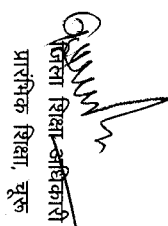 जिला शिक्षा अधिकारी
प्रारंभिक शिक्षा, चूरू